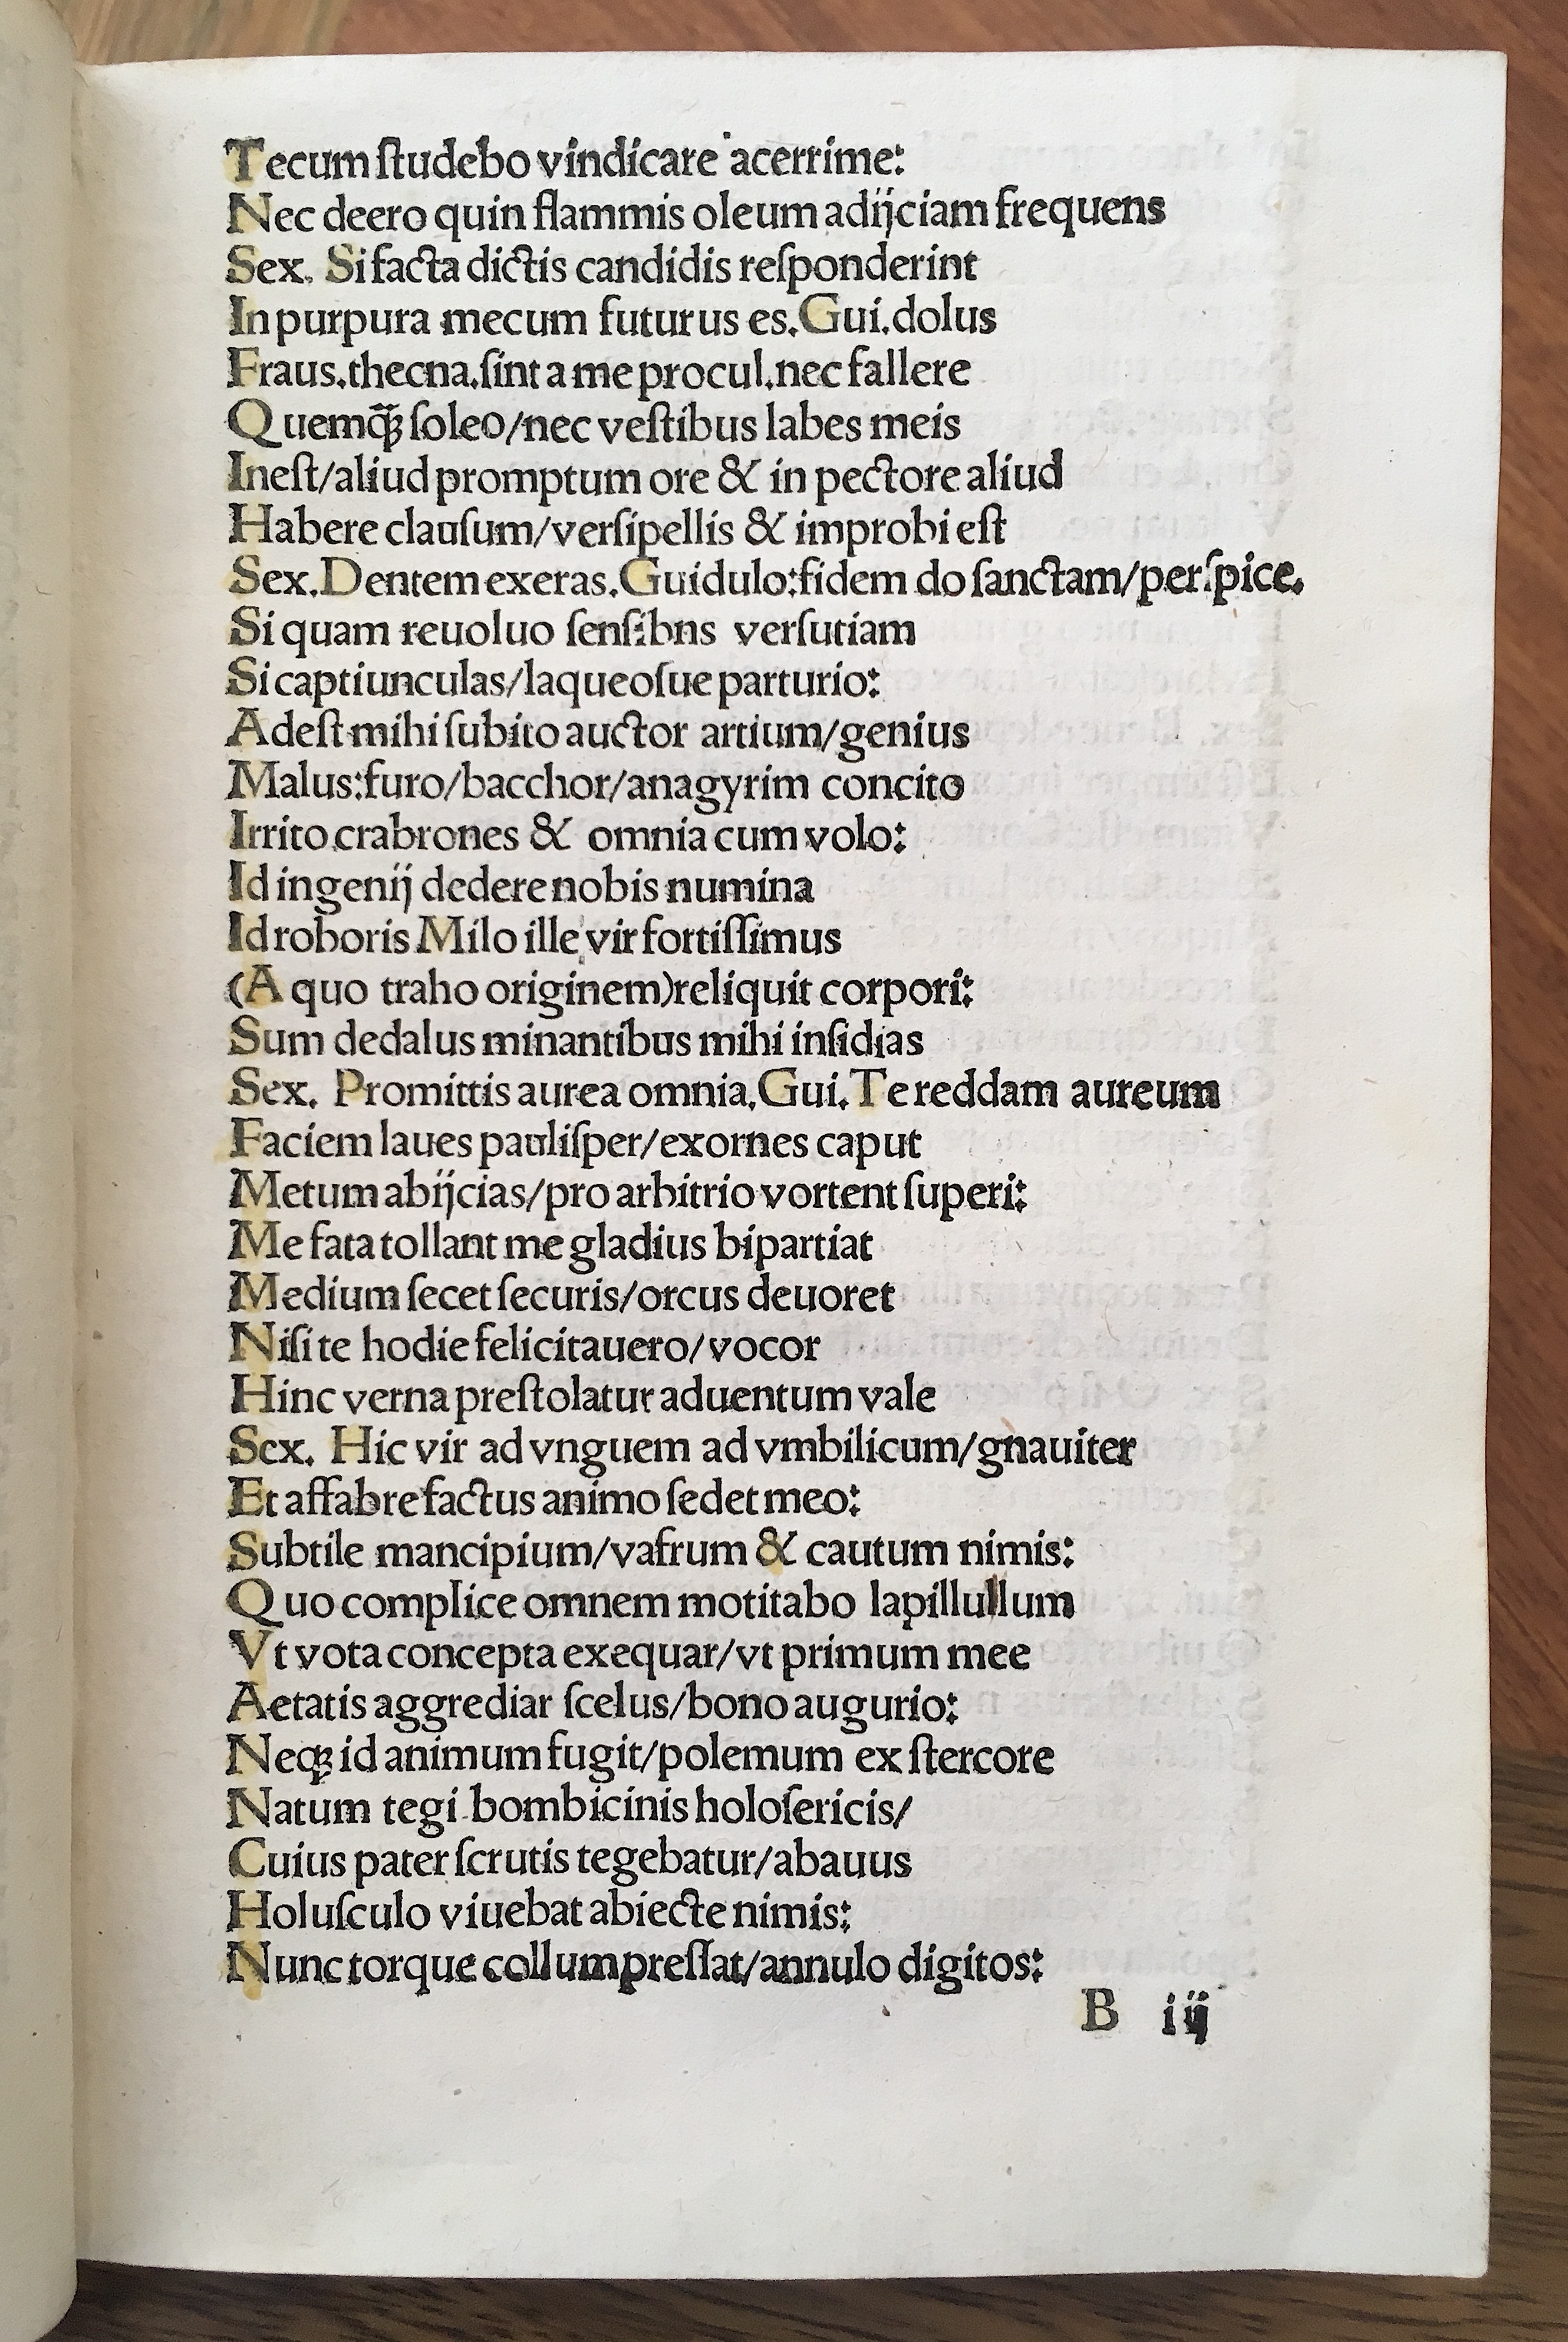 Tecum ſtudebo vindicare acerrime:
Nec deero quin flammis oleum adijciam frequens
Sex. Si facta dictis candidis reſponderint
In purpura mecum futurus es. Gui. dolus
Fraus. thecna. ſint a me procul. nec fallere
Quemq̄ꝫ ſoleo/nec veſtibus labes meis
Ineſt/aliud promptum ore & in pectore aliud
Habere clauſum/verſipellis & improbi eſt
Sex. Dentem exeras. Guidulo: fidem do ſanctam/perſpice.
Si quam reuoluo ſenſibns verſutiam
Si captiunculas/laqueoſue parturio:
Adeſt mihi ſubito auctor artium/genius
Malus: furo/bacchor/anagyrim concito
Irrito crabrones & omnia cum volo:
Id ingenij dedere nobis numina
Id roboris Milo ille vir fortiſſimus
(A quo traho originem) reliquit corpori:
Sum dedalus minantibus mihi inſidias
Sex. Promittis aurea omnia. Gui. Te reddam aureum
Faciem laues pauliſper/exornes caput
Metum abijcias/pro arbitrio vortent ſuperi:
Me fata tollant me gladius bipartiat
Medium ſecet ſecuris/orcus deuoret
Niſi te hodie felicitauero/vocor
Hinc verna preſtolatur aduentum vale
Sex. Hic vir ad vnguem ad vmbilicum/gnauiter
Et affabre factus animo ſedet meo:
Subtile mancipium/vafrum & cautum nimis:
Quo complice omnem motitabo lapillullum
Vt vota concepta exequar/vt primum mee
Aetatis aggrediar ſcelus/bono augurio:
Neqꝫ id animum fugit/polemum ex ſtercore
Natum tegi bombicinis holoſericis/
Cuius pater ſcrutis tegebatur/abauus
Holuſculo viuebat abiecte nimis:
Nunc torque collum preſſat/annulo digitos:
B iij